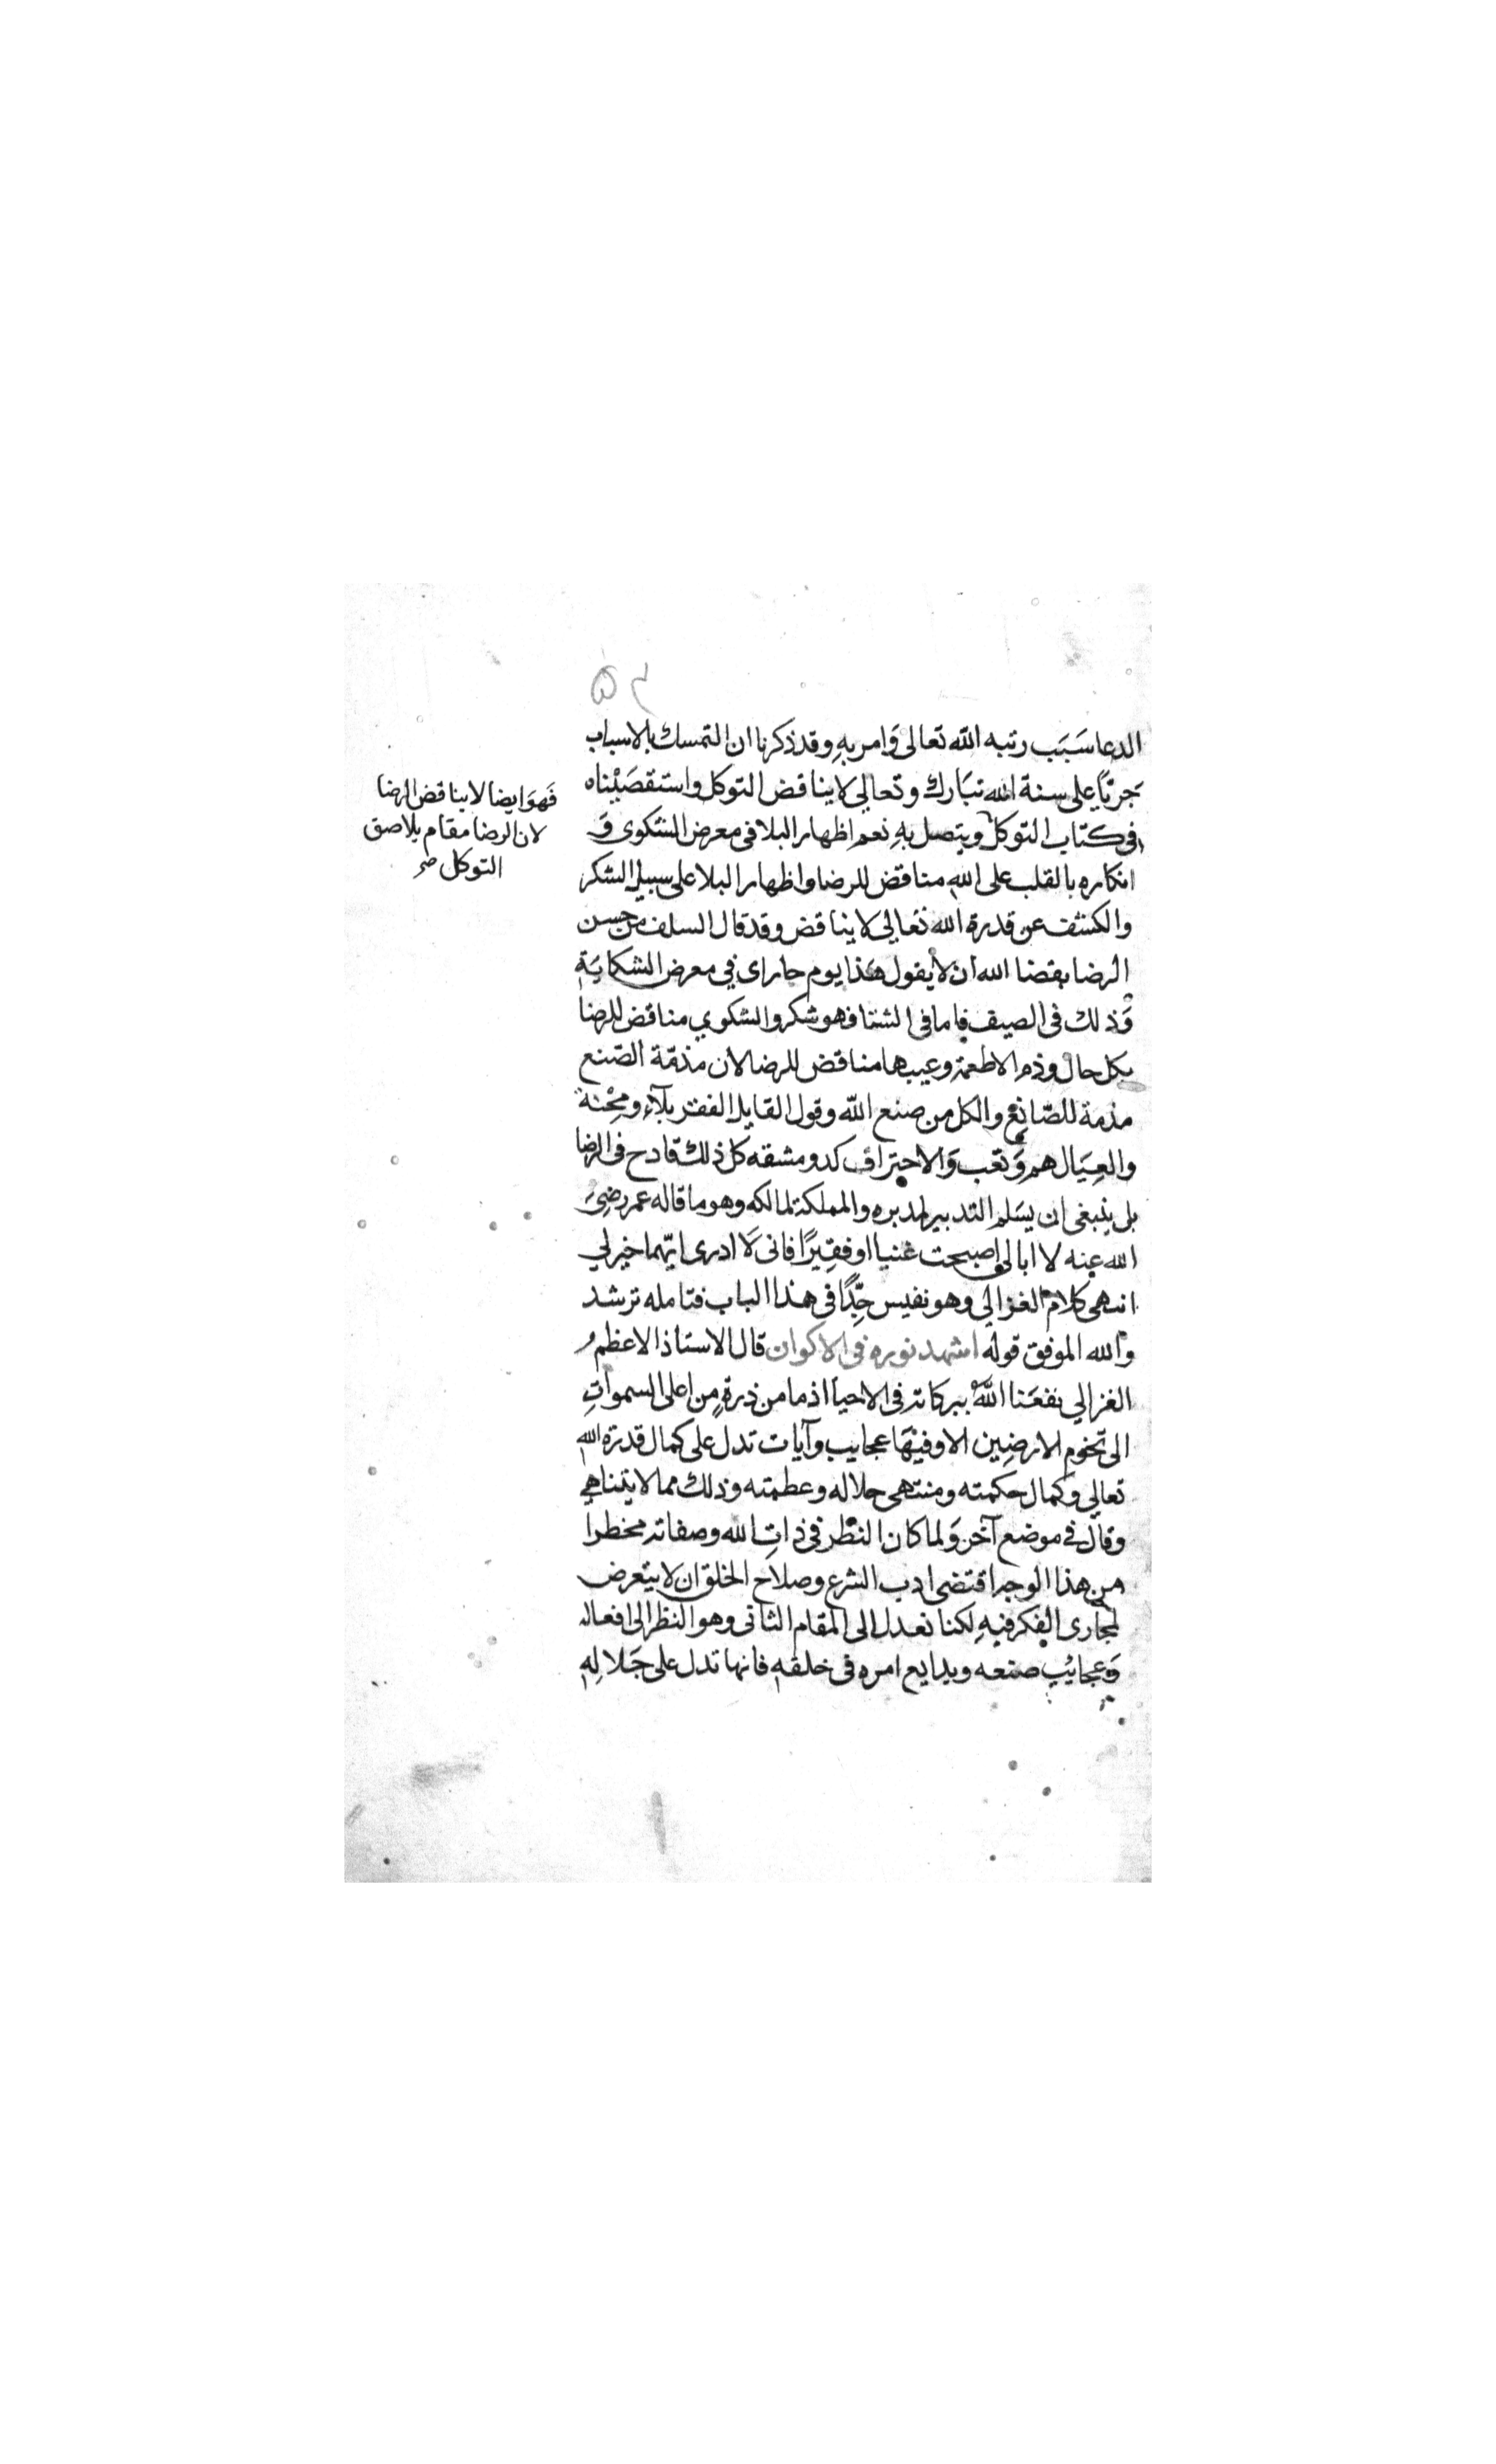 ٥٤
الدعا سَبَب رتبه اللّه تعالى وَامر بهِ وقد ذكرنا ان التمسك بالاسباب
جريًا على سنة الله تبَارك وتعالي لا يناقض التوكل واستقصَيْناه
في كتاب التوكل ويتصل بهِ نعم اظهار البلا في معرض الشكوى وَ
انكاره بالقلب على اللهِ مناقض للرضا واظهار البلا على سبيل الشكر
والكشف عن قدرة الله تعالي لا يناقض وقد قال السلف من حسن
الرضا بقضا الله ان لا يقول هَذا يوم حار اى في معرض الشكايَة
وَذلك فى الصيف فاما في الشتا فهو شكر والشكوي مناقض للرضا
بكل حال وذم الاطعمة وعيبها مناقض للرضا لان مذمّة الصّنع
مذمة للصّانِع والكل من صنع اللّه وقول القايل الفقر بلآء ومِحْنة
والعِيَال هم وَتعب وَالاحتراف كد ومشقه كل ذلك قادح فى الرضا
بل ينبغى ان يسَلم التدبير لمدبره والمملكة لمالكه وهو ما قاله عمر رضِيَ
الله عنه لا ابالى اصبحت غنيا او فقِيرًا فانى لَا ادرى ايّهما خير لي
انتهى كلام الغزالي وهو نفيس جِدًّا في هذا الباب فتامله ترشد
والله الموفق قوله اشهد نوره فى الاكوان قال الاستاذ الاعظم
الغزالي نفعَنا اللّهُ ببركاته فى الاحيا اذ ما من ذرةٍ مِن اعلى السمواتِ
الى تخوم الارضِين الا وفيهَا عجايب وآيات تدل على كمال قدرة الله
تعالي وكمال حكمته ومنتهى جلاله وعظمته وذلك مما لا يتناهي
وقال في موضع آخر وَلما كان النظر في ذاتِ الله وصفاته مخطرا
من هذا الوجه اقتضى ادب الشرع وصلاح الخلق ان لا يتعرض
لمجارى الفكر فيهِ لكنا نعدل الى المقام الثانى وهو النظر الى افعاله
وَعجايب صنعه وبدايع امره فى خلقهِ فانها تدل على جَلالِهِ
فَهوَ ايضا لا يناقض الرضا
لان الرضا مقام يلاصق
التوكل صح